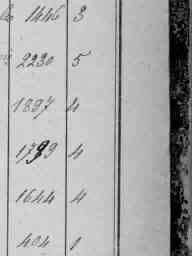 1446 3
2230 5
1897 4
1793 4
1644 4
404 1